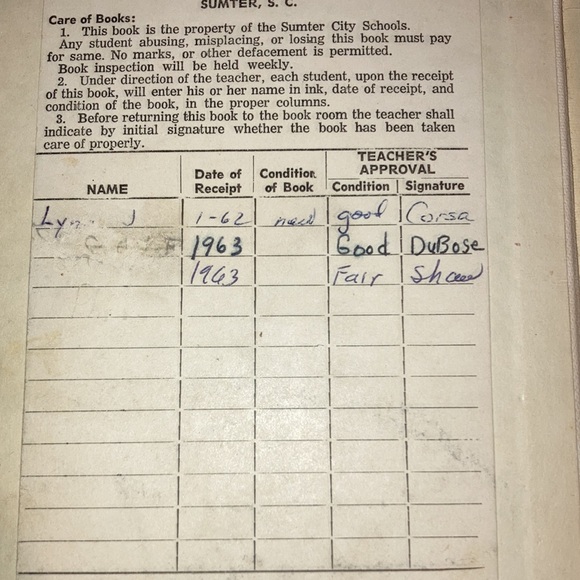 SUMTER, S. C.
Care of Books:
1. This book is the property of the Sumter City Schools.
Any student abusing, misplacing, or losing this book must pay
for same. No marks, or other defacement is permitted.
Book inspection will be held weekly.
2. Under direction of the teacher, each student, upon the receipt
of this book, will enter his or her name in ink, date of receipt, and
condition of the book, in the proper columns.
3. Before returning this book to the book room the teacher shall
indicate by initial signature whether the book has been taken
care of properly.
NAME Date of Receipt Condition of Book TEACHER'S APPROVAL Condition Signature
J 1-62 new good Corsa
1963 Good DuBose
1963 Fair Shaw